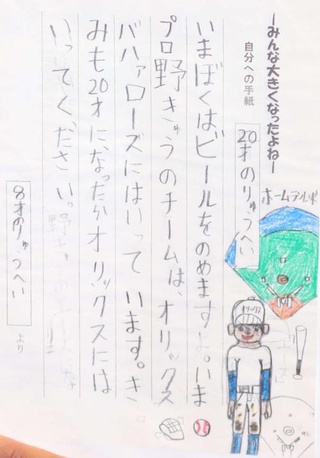 ーみんな大きくなったよねー
自分への手紙
20才のりゅうへい
いまぼくはビールをのめますか。いま
プロ野きゅうのチームは、オリックス
バハァローズにはいって います。き
みも20才に、なったらオリックスには
いってく、ださい。
8才のりゅうへい
より
オリックス